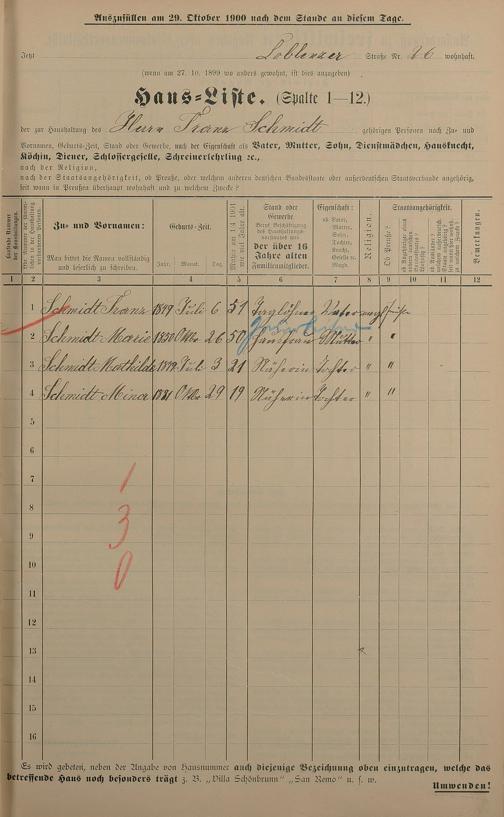 Auszufüllen am 29. Oktober 1900 nach dem Stande an diesem Tage.
Jetzt Coblenzer Straße Nr. 26 wohnhaft.
(wenn am 27. 10. 1899 wo anders gewohnt, ist dies anzugeben)
Haus-Liste. (Spalte 1—12.)
der zur Haushaltung des Herrn Franz Schmidt gehörigen Personen nach Zu- und
Vornamen, Geburts-Zeit, Stand oder Gewerbe, nach der Eigenschaft als Vater, Mutter, Sohn, Dienstmädchen, Hausknecht,
Köchin, Diener, Schlossergeselle, Schreinerlehrling ꝛc.,
nach der Religion,
nach der Staatsangehörigkeit, ob Preuße, oder welchem anderen deutschen Bundesstaate oder außerdeutschen Staatsverbande angehörig,
seit wann in Preußen überhaupt wohnhaft und zu welchem Zwecke?
Zu- und Vornamen:
Man bittet die Namen vollständig
und leserlich zu schreiben.
Geburts-Zeit.
Jahr. Monat. Tag.
Stand oder
Gewerbe.
der über 16
Jahre alten
Familienmitglieder.
Eigenschaft:
ob Vater,
Mutter,
Sohn,
Tochter,
Knecht,
Geselle o.
Magd.
Religion.
Staatsangehörigkeit.
Ob Preuße?
Bemerkungen.
1 2 3 4 5 6 7 8 9 10 11 12
1 Schmidt Franz 1849 Juli 6 51 Taglöhner Vater
2 Schmidt Marie 1850 Oktbr 26 50 Hausfrau Mutter " "
3 Schmidt Mathilde Juli 3 21 Näherin Tochter " "
4 Schmidt Mina 1881 Oktbr 29 19 Näherin Tochter " "
5
6
7
1
8
3
9
10
0
11
12
13
14
15
16
Es wird gebeten, neben der Angabe von Hausnummer auch diejenige Bezeichnung oben einzutragen, welche das
betreffende Haus noch besonders trägt z. B. „Villa Schönbrunn" „San Remo" u. s. w.
Umwenden!